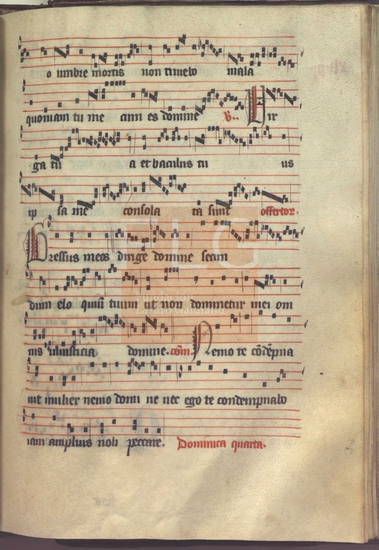 o umbre mortis non timebo mala
quoniam tu me cum es domine V. Vir
ga tu a et baculus tu us
ip sa me consola ta sunt offertor.
Gressus meos dirige domine secun
dum elo quium tuum ut non dominetur mei om
nis iniusticia domine. com. Nemo te condempna
uit mulier nemo domi ne nec ego te condempnabo
iam amplius noli peccare. Dominica quarta.